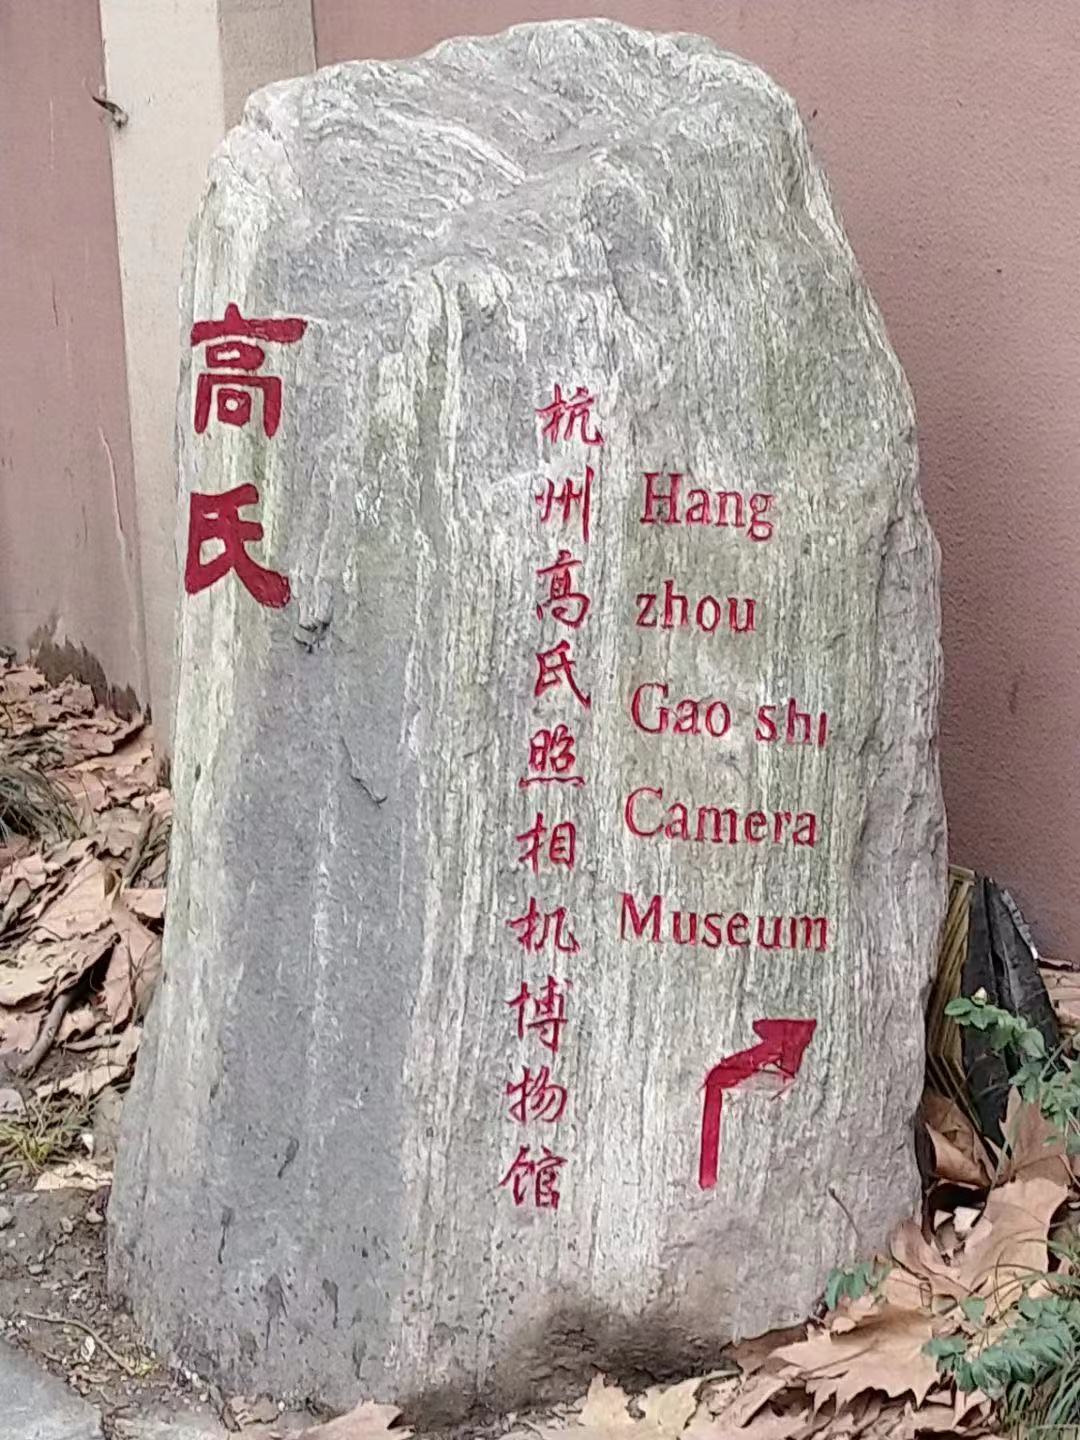 高氏
杭州高氏照相机博物馆
Hang
zhou
Gao shi
Camera
Museum